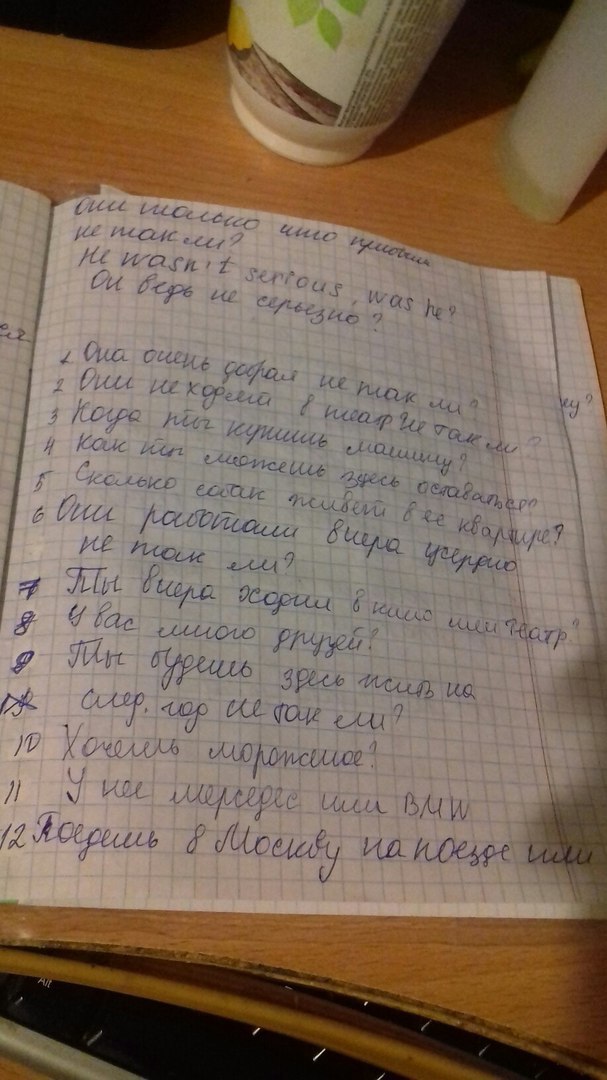 они только что пришли
не так ли?
He wasn't serious, was he?
Он ведь не серьезно?
1 Она очень добрая не так ли?
2 Они не ходят в театр не так ли?
3 Когда ты купишь машину?
4 Как ты можешь здесь оставаться?
5 Сколько собак живет в ее квартире?
6 Они работали вчера усердно
не так ли?
7 Ты вчера ходил в кино или театр?
8 У вас много друзей?
9 Ты будешь здесь жить на
след. год не так ли?
10 Хочешь мороженое?
11 У нее мерседес или BMW
12 Поедешь в Москву на поезде или
Alt